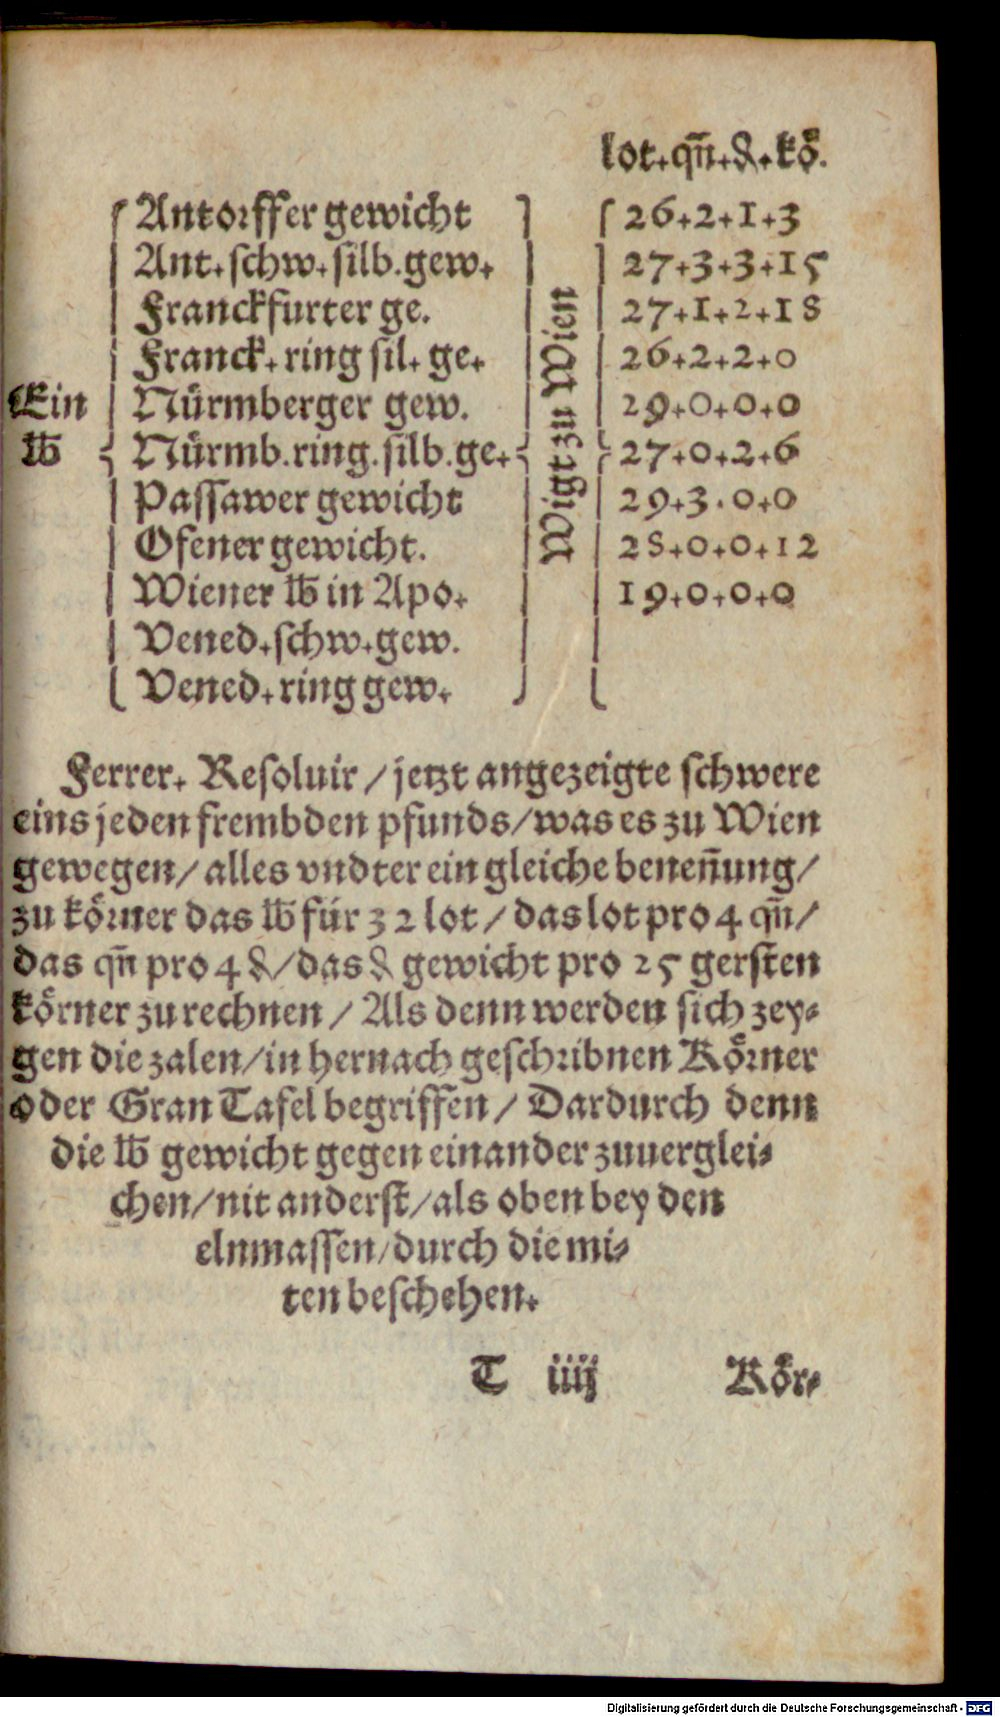 lot.qn̄.₰.kö.
Antorffer gewicht 26.2.1.3
Ant.schw.silb.gew. 27.3.3.15
Franckfurter ge. 27.1.2.18
Franck.ring sil.ge. 26.2.2.0
Ein Nürmberger gew. 29.0.0.0
℔ Nürmb.ring.silb.ge. 27.0.2.6
Passawer gewicht 29.3.0.0
Ofener gewicht. 28.0.0.12
Wiener ℔ in Apo. 19.0.0.0
Vened.schw.gew.
Vened.ring gew.
Wigt zu Wien
Ferrer. Resoluir / jetzt angezeigte schwere
eins jeden frembden pfunds/was es zu Wien
gewegen/ alles vndter ein gleiche beneñung/
zu körner das ℔ für 32 lot / das lot pro 4 qn̄/
das qn̄ pro 4 ₰/das ₰ gewicht pro 25 gersten
körner zu rechnen / Als denn werden sich zey⸗
gen die zalen/in hernach geschribnen Körner
oder Gran Tafel begriffen / Dardurch denn
die ℔ gewicht gegen einander zuuerglei⸗
chen/nit anderst/als oben bey den
elnmassen/durch die mi⸗
ten beschehen.
T iiij Kör⸗
Digitalisierung gefördert durch die Deutsche Forschungsgemeinschaft - DFG